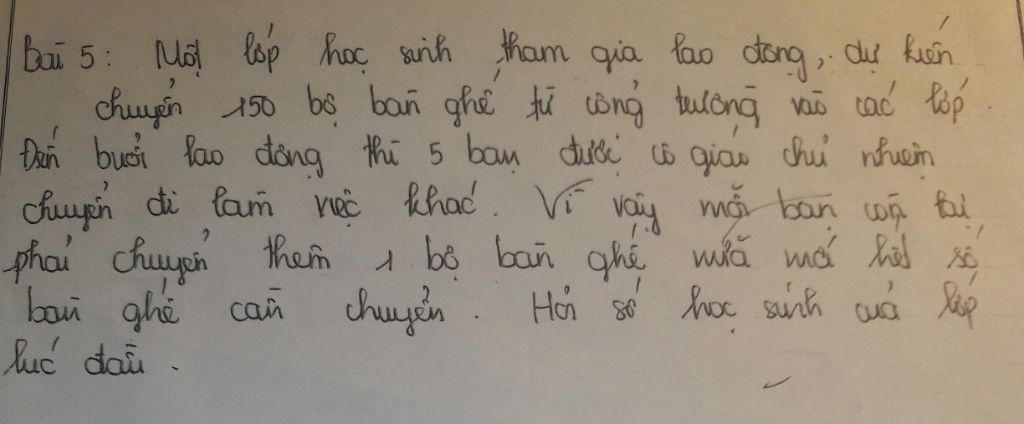 Bài 5: Một lớp học sinh tham gia lao động, dự kiến
chuyển 150 bộ bàn ghế từ cổng trường vào các lớp.
Đến buổi lao động thì 5 bạn được cô giáo chủ nhiệm
chuyển đi làm việc khác. Vì vậy mỗi bạn còn lại
phải chuyển thêm 1 bộ bàn ghế nữa mới hết số
bàn ghế cần chuyển. Hỏi số học sinh của lớp
lúc đầu.